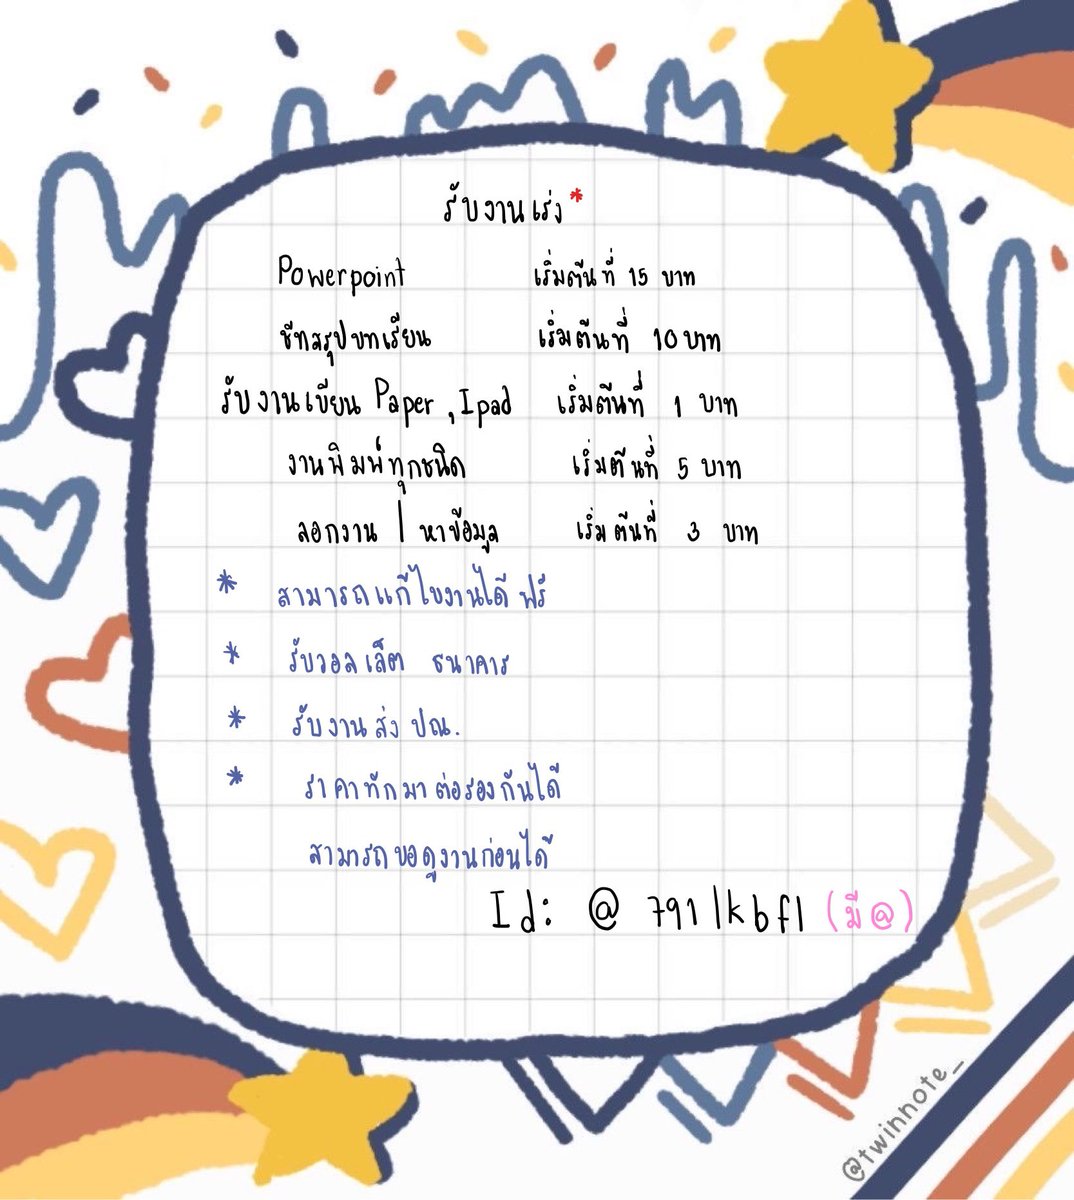 รับงานเร่ง*
Powerpoint เริ่มต้นที่ 15 บาท
ชีทสรุปบทเรียน เริ่มต้นที่ 10 บาท
รับงานเขียน Paper , Ipad เริ่มต้นที่ 1 บาท
งานพิมพ์ทุกชนิด เริ่มต้นที่ 5 บาท
ลอกงาน | หาข้อมูล เริ่มต้นที่ 3 บาท
* สามารถแก้ไขงานได้ ฟรี
* รับวอลเล็ต ธนาคาร
* รับงานส่ง ปณ.
* ราคาทักมาต่อรองกันได้
สามารถขอดูงานก่อนได้
Id: @ 791lkbfl (มี@)
@twinnote_